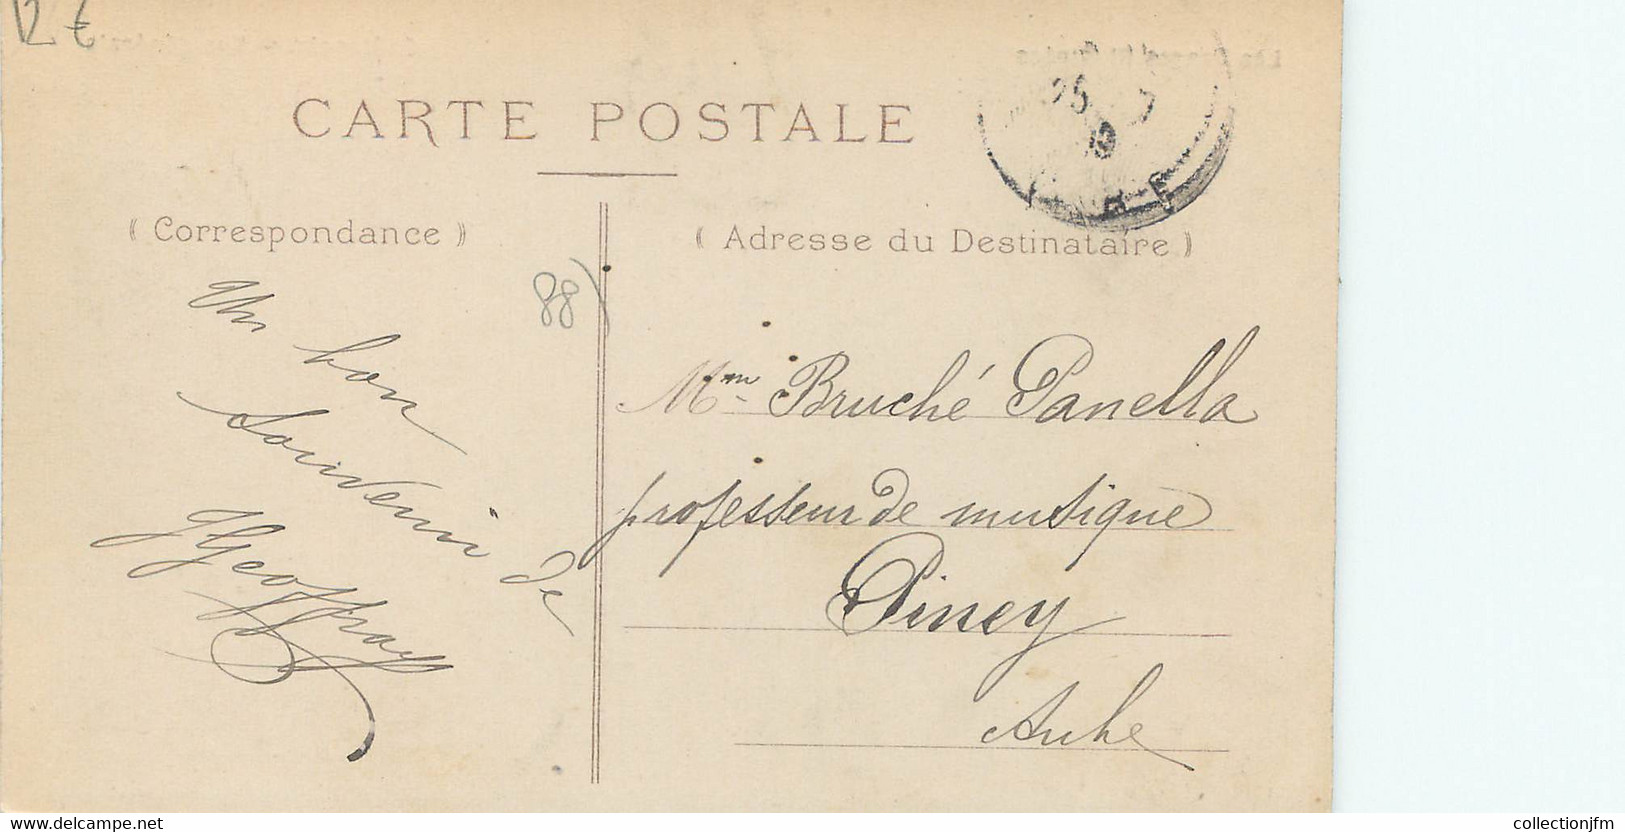 12 €
CARTE POSTALE
25 7
19
( Correspondance )
( Adresse du Destinataire )
88)
Un bon
Souvenir
de
JGeoffroy
Mme Bruché Panella
professeur de musique
Piney
Aube
www.delcampe.net
collectionjfm